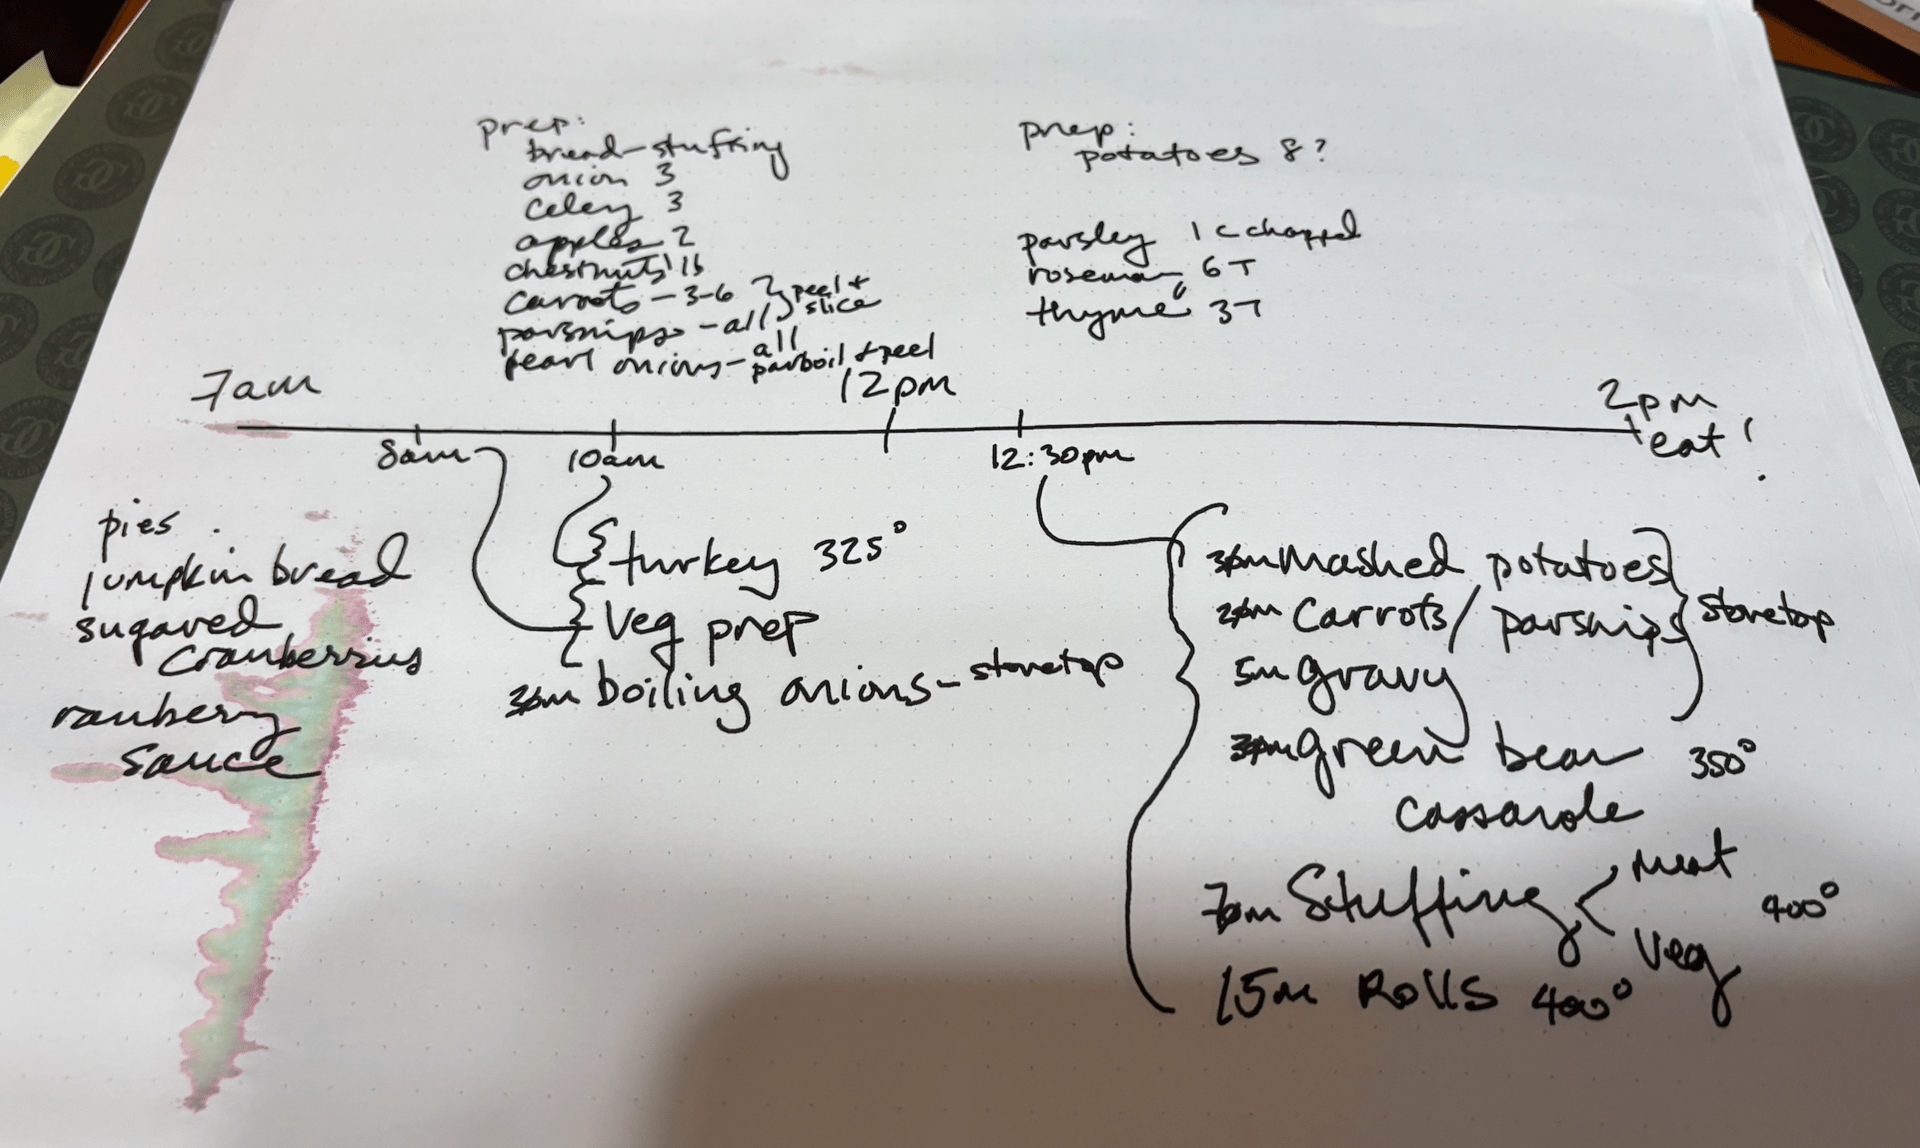 prep:
bread-stuffing
onion 3
celery 3
apples 2
chestnuts 16
carrots - 3-6 } peel +
parsnips - all } slice
pearl onions - all
parboil + peel
prep:
potatoes 8?
parsley 1 c chopped
rosemar 6 T
thyme 3T
7am
12pm
2pm
8am
10am
12:30pm
eat!
pies
umpkin bread
sugared
cranberries
ranberry
sauce
turkey 325°
veg prep
30m boiling onions - stovetop
30m mashed potatoes
20m carrots / parsnips
stovetop
5m gravy
30m green bean 350°
cassarole
70m Stuffing < meat
veg
400°
15m Rolls 400°